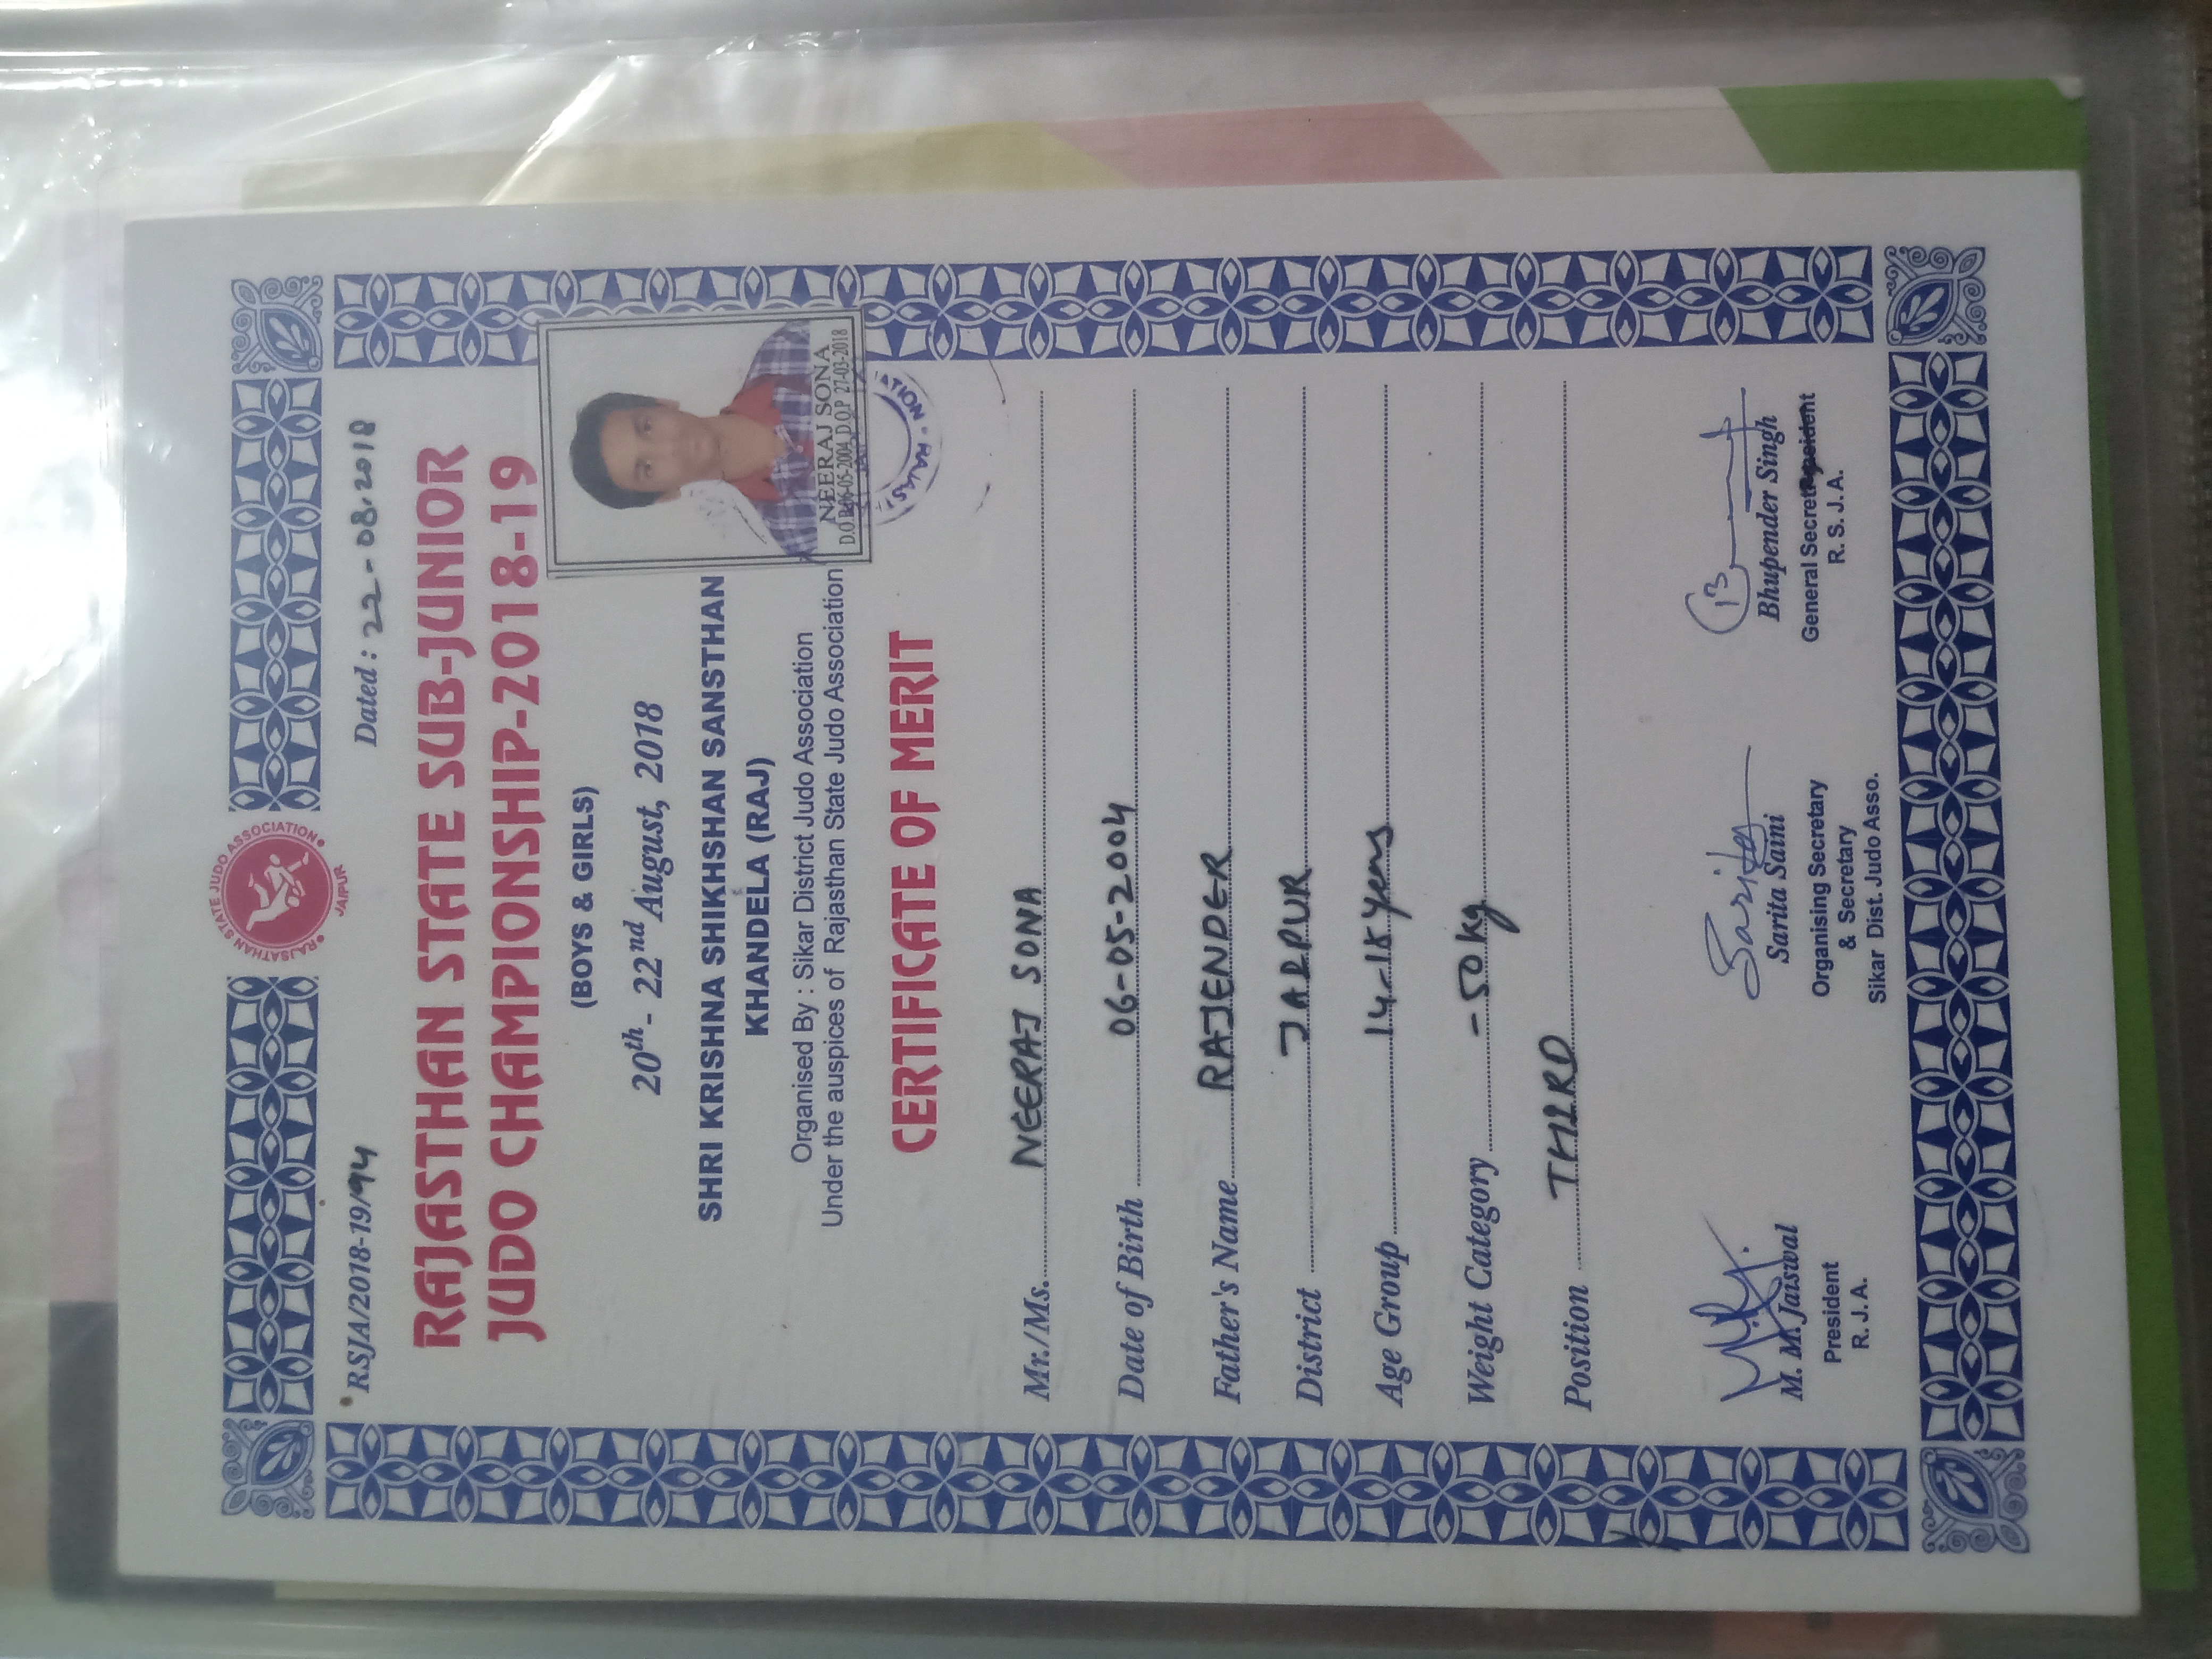 RSJA/2018-19/94
•RAJSATHAN STATE JUDO ASSOCIATION•
JAIPUR
Dated : 22-08-2018
RAJASTHAN STATE SUB-JUNIOR
JUDO CHAMPIONSHIP-2018-19
(BOYS & GIRLS)
20th - 22nd August, 2018
SHRI KRISHNA SHIKHSHAN SANSTHAN
KHANDELA (RAJ)
Organised By : Sikar District Judo Association
Under the auspices of Rajasthan State Judo Association
NEERAJ SONA
D.O.B 06-05-2004 D.O.P 27-03-2018
CERTIFICATE OF MERIT
Mr./Ms. NEERAJ SONA
Date of Birth 06-05-2004
Father's Name RAJENDER
District JAIPUR
Age Group 14-15 Years
Weight Category -50 kg
Position THIRD
M. M. Jaiswal
President
R. J. A.
Sarita
Sarita Saini
Organising Secretary
& Secretary
Sikar Dist. Judo Asso.
Bhupender Singh
General Secret
R. S. J. A.